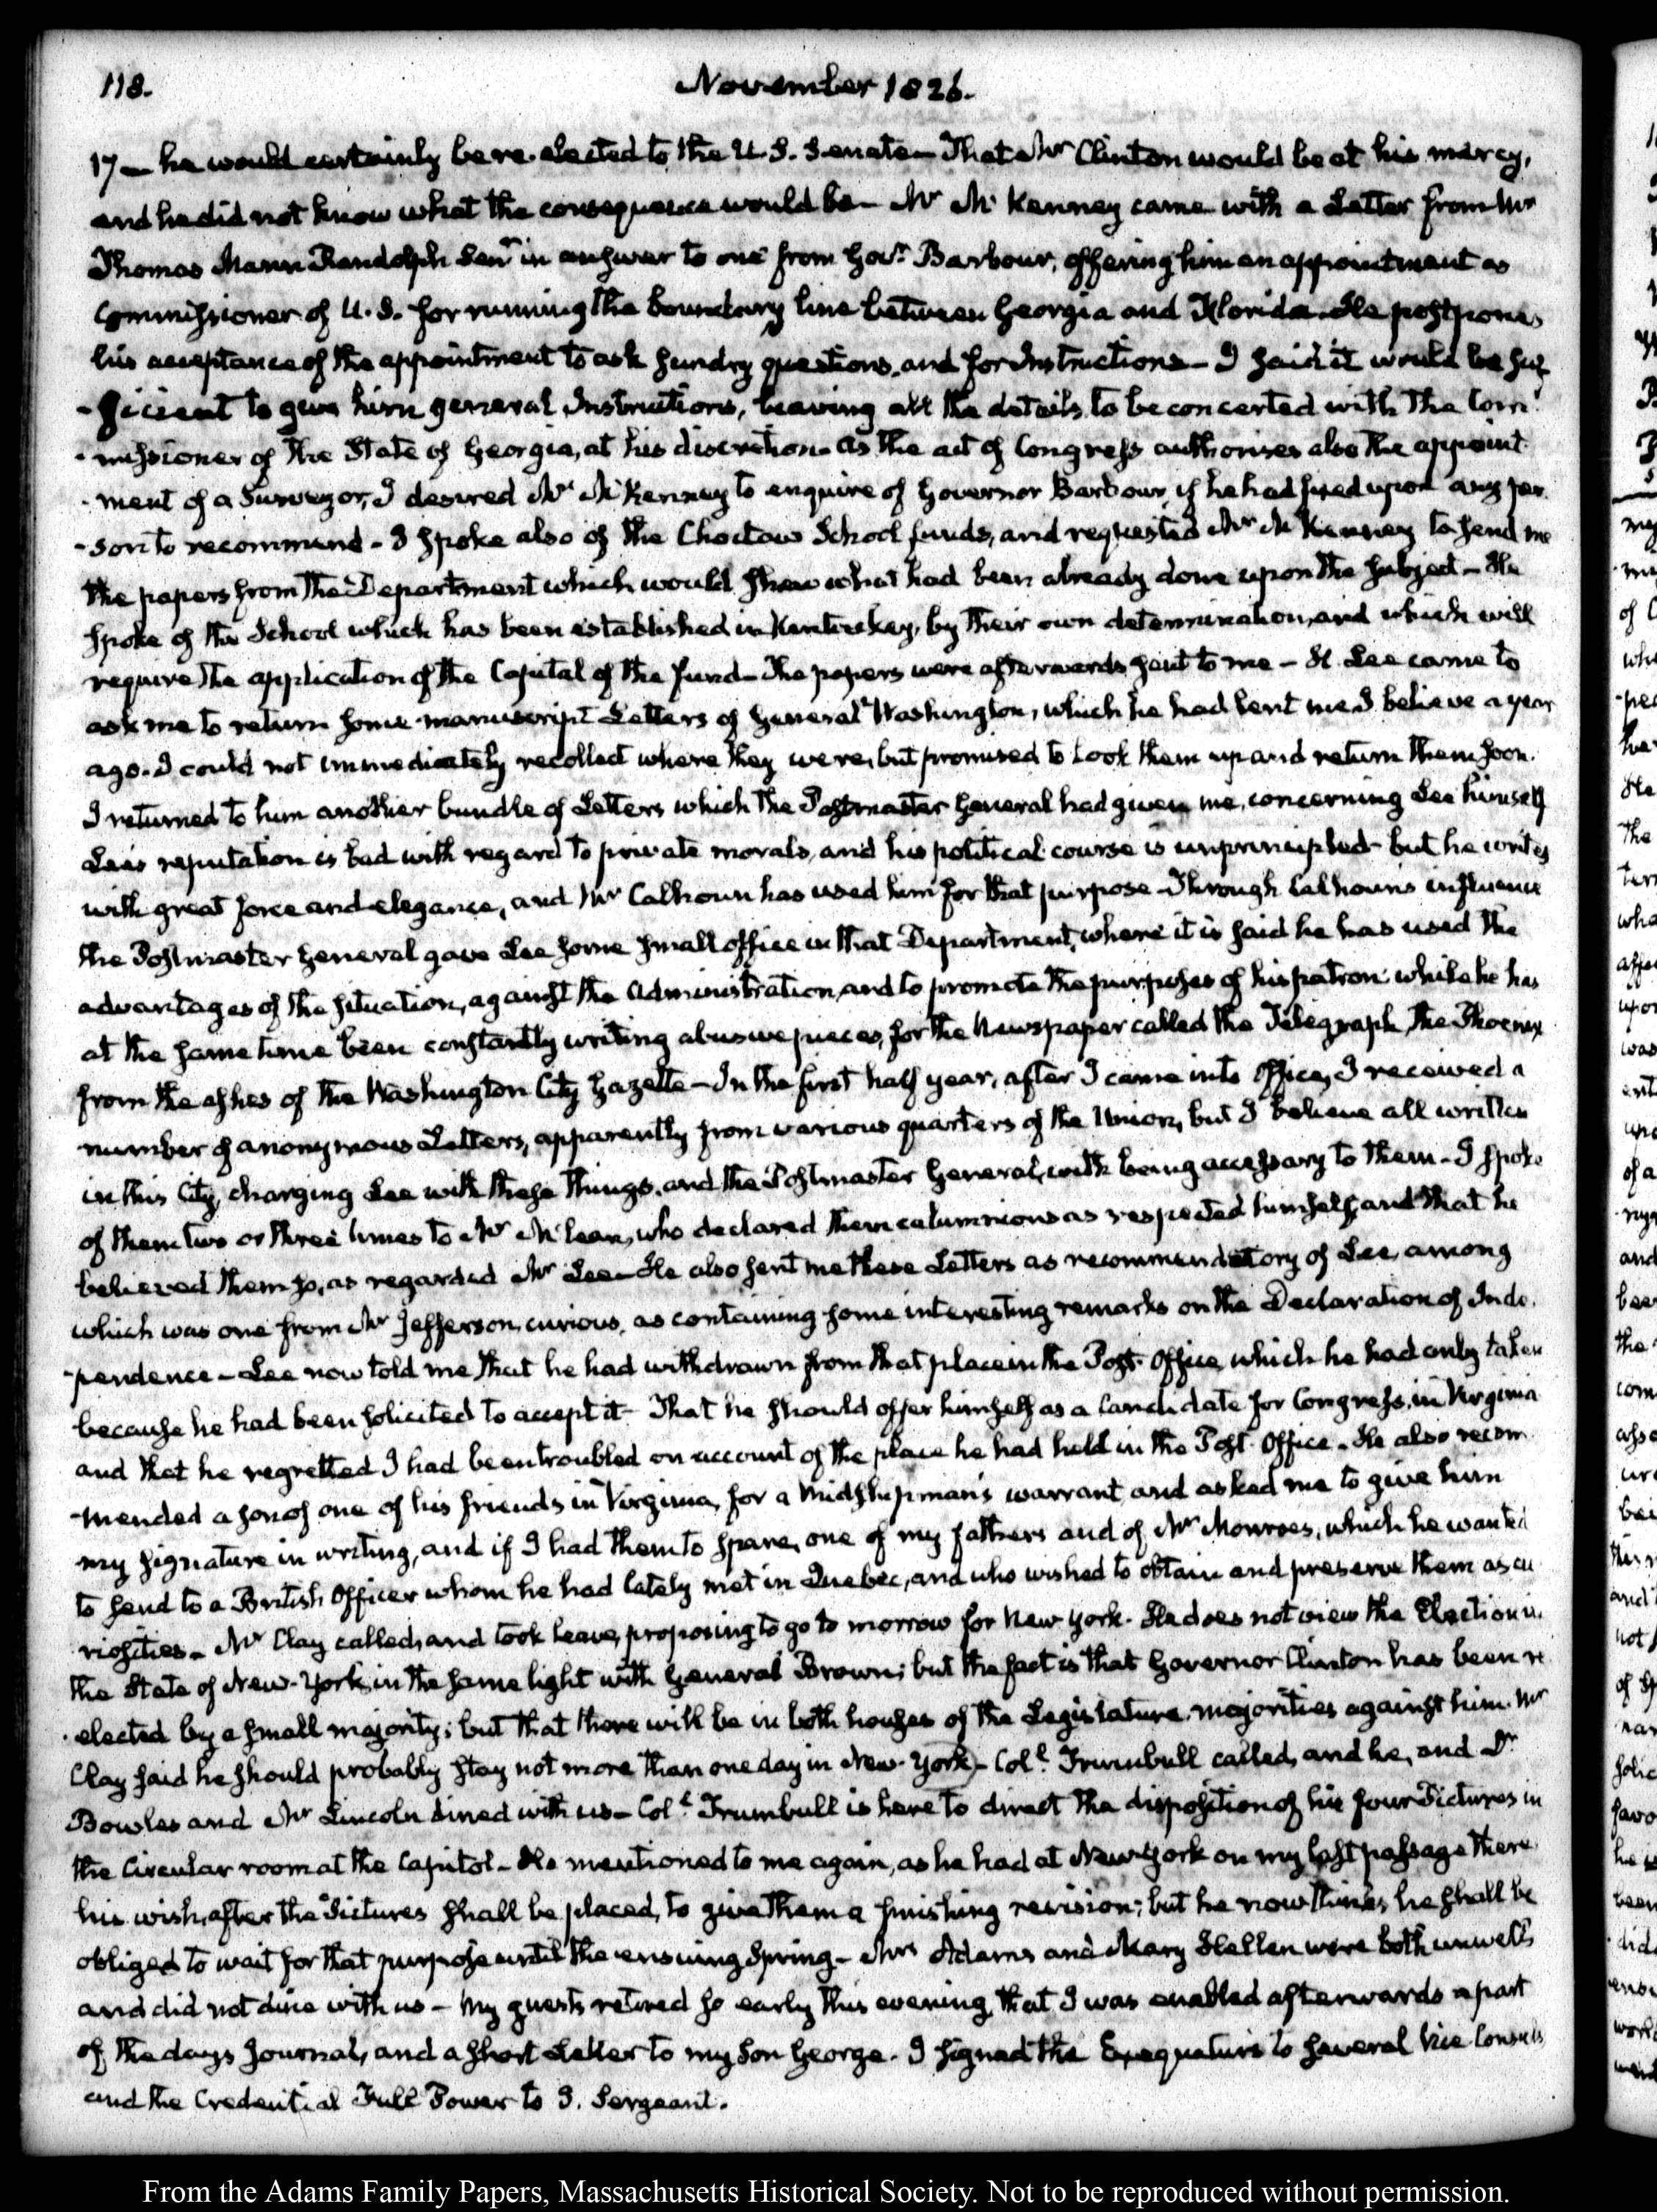 118.
November 1826.
17 — he would certainly be re-elected to the U.S. Senate — That Mr Clinton would be at his mercy,
and he did not know what the consequence would be — Mr McKenney came with a Letter from Mr
Thomas Mann Randolph Senr in answer to one from Govr Barbour, offering him an appointment as
Commissioner of U.S. for running the boundary line between Georgia and Florida. He postpones
his acceptance of the appointment to ask sundry questions, and for Instructions — I said it would be suf-
-ficient to give him general Instructions, leaving all the details, to be concerted with the Com-
-missioner of the State of Georgia, at his discretion — As the act of Congress authorises also the appoint-
-ment of a Surveyor, I desired Mr McKenney to enquire of Governor Barbour, if he had fixed upon any per-
-son to recommend — I spoke also of the Choctaw School funds, and requested Mr McKenney to send me
the papers from the Department which would shew what had been already done upon the subject — He
spoke of the School which has been established in Kentuckey, by their own determination, and which will
require the application of the Capital of the fund — The papers were afterwards sent to me — H. Lee came to
ask me to return some manuscript Letters of General Washington, which he had lent me I believe a year
ago. I could not immediately recollect where they were, but promised to look them up and return them soon.
I returned to him another bundle of Letters which the Postmaster General had given me, concerning Lee himself
Lee's reputation is bad with regard to private morals, and his political course is unprincipled — but he writes
with great force and elegance, and Mr Calhoun has used him for that purpose — Through Calhouns influence
the Postmaster General gave Lee some small office in that Department, where it is said he has used the
advantages of the situation, against the Administration, and to promote the purposes of his patron while he has
at the same time been constantly writing abusive pieces, for the Newspaper called the Telegraph, the Phoenix
from the ashes of the Washington City Gazette — In the first half year, after I came into Office, I received a
number of anonymous Letters, apparently from various quarters of the Union, but I believe all written
in this City, charging Lee with these things, and the Postmaster General, with being accessary to them — I spoke
of them two or three times to Mr McLean, who declared them calumnious as respected himself, and that he
believed them so, as regarded Mr Lee — He also sent me these Letters as recommendatory of Lee, among
which was one from Mr Jefferson, curious, as containing some interesting remarks on the Declaration of Inde-
-pendence — Lee now told me that he had withdrawn from that place in the Post-Office, which he had only taken
because he had been solicited to accept it — That he should offer himself as a Candidate for Congress, in Virginia
and that he regretted I had been troubled on account of the place he had held in the Post-Office. He also recom-
-mended a son of one of his friends in Virginia, for a Midshipman's warrant, and asked me to give him
my signature in writing, and if I had them to spare, one of my fathers and of Mr Monroes, which he wanted
to send to a British Officer whom he had lately met in Quebec, and who wished to obtain and preserve them as cu-
-riosities — Mr Clay called, and took leave, proposing to go to morrow for New York. He does not view the Election in
the State of New-York, in the same light with General Brown; but the fact is that Governor Clinton has been re-
-elected by a small majority; but that there will be in both houses of the Legislature, majorities against him. Mr
Clay said he should probably stay not more than one day in New-York — Coll Trumbull called, and he, and Dr
Bowles and Mr Lincoln dined with us — Coll Trumbull is here to direct the disposition of his four Pictures in
the Circular room at the Capitol — He mentioned to me again, as he had at New-York on my last passage there
his wish, after the Pictures shall be placed, to give them a finishing revision; but he now thinks he shall be
obliged to wait for that purpose until the ensuing Spring — Mrs Adams and Mary Hellen were both unwell
and did not dine with us — My guests retired so early this evening, that I was enabled afterwards a part
of the days journal, and a short Letter to my Son George. I signed the Exequaturs to several Vice Consuls
and the Credential Full Power to J. Sergeant.
From the Adams Family Papers, Massachusetts Historical Society. Not to be reproduced without permission.